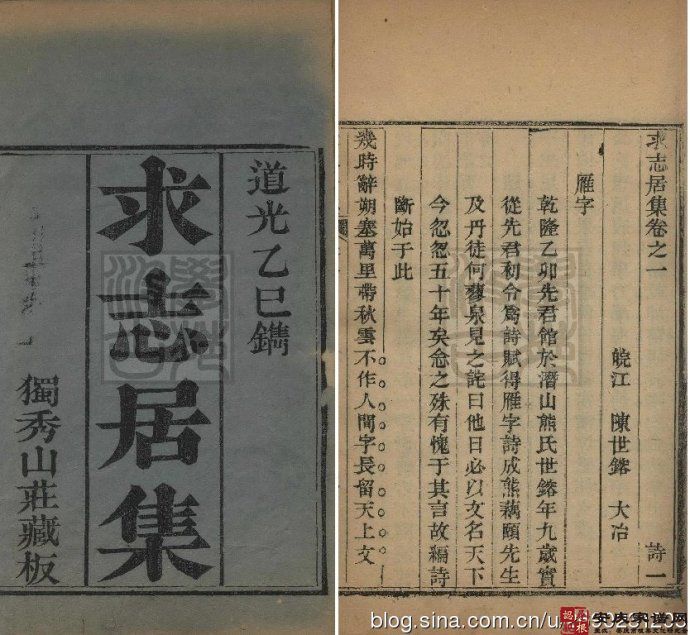 道光乙巳鐫
求志居集
獨秀山莊藏板
求志居集卷之一 詩一
皖江 陳世鎔 大冶
雁字
乾隆乙卯先君館於潛山熊氏世鎔年九歲實
從先君初令爲詩賦得雁字詩成熊藕頤先生
及丹徒何蓼泉見之詫曰他日必以文名天下
今忽忽五十年矣念之殊有愧于其言故編詩
斷始于此
幾時辭朔塞萬里帶秋雲不作人間字長留天上文
安庆家谱网